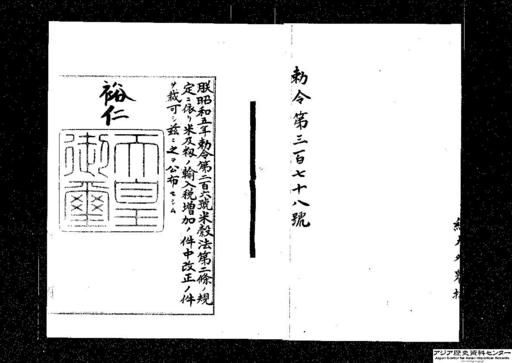 勅令第三百七十八號
朕昭和五年勅令第二百六號米穀法第二條ノ規
定ニ依リ米及籾ノ輸入税増加ノ件中改正ノ件
ヲ裁可シ茲ニ之ヲ公布セシム
裕仁
天皇
御璽
アジア歴史資料センター
Japan Center for Asian Historical Records